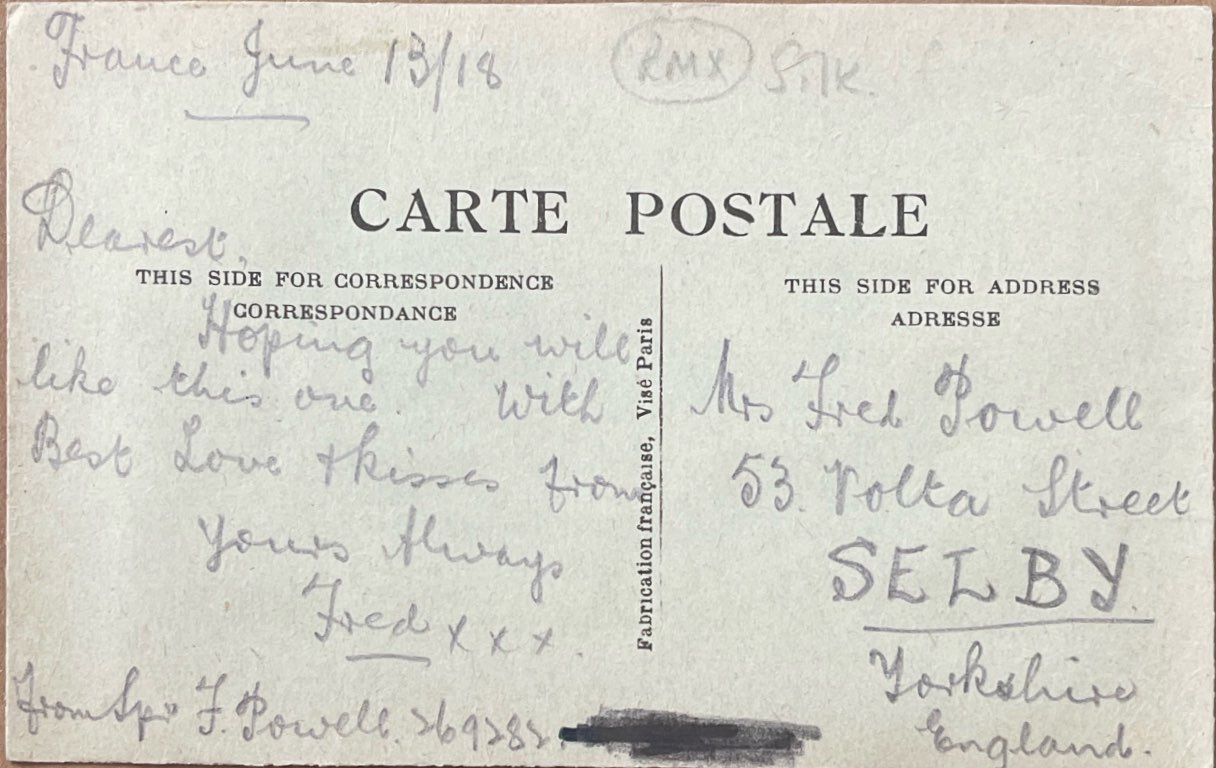 France June 13/18
RMX Silk.
CARTE POSTALE
Dearest,
THIS SIDE FOR CORRESPONDENCE
CORRESPONDANCE
Hoping you will
like this one. With
Best Love + kisses from
Yours Always
Fred x x x.
From Spr F. Powell.
Fabrication française, Visé Paris
THIS SIDE FOR ADDRESS
ADRESSE
Mrs Fred Powell
53. Volta Street
SELBY.
Yorkshire
England.